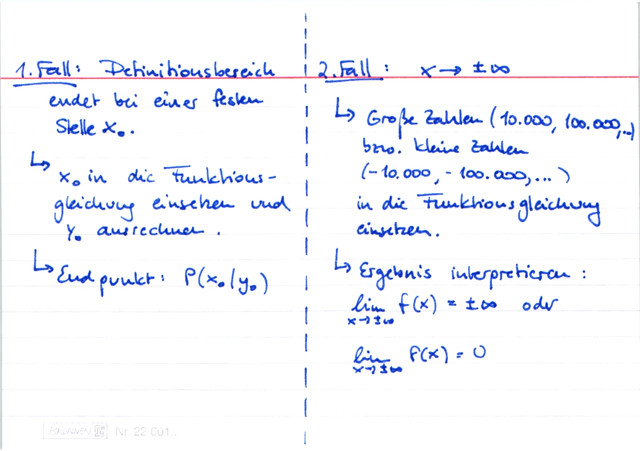 1. Fall: Definitionsbereich
endet bei einer festen
Stelle x₀.
↳ x₀ in die Funktions-
gleichung einsetzen und
y₀ ausrechnen.
↳ Endpunkt: P(x₀/y₀)
2. Fall: x → ±∞
↳ Große Zahlen (10.000, 100.000,...)
bzw. kleine Zahlen
(-10.000, -100.000,...)
in die Funktionsgleichung
einsetzen.
↳ Ergebnis interpretieren:
lim f(x) = ±∞ oder
x→±∞
lim f(x) = 0
x→±∞
Nr. 22 001